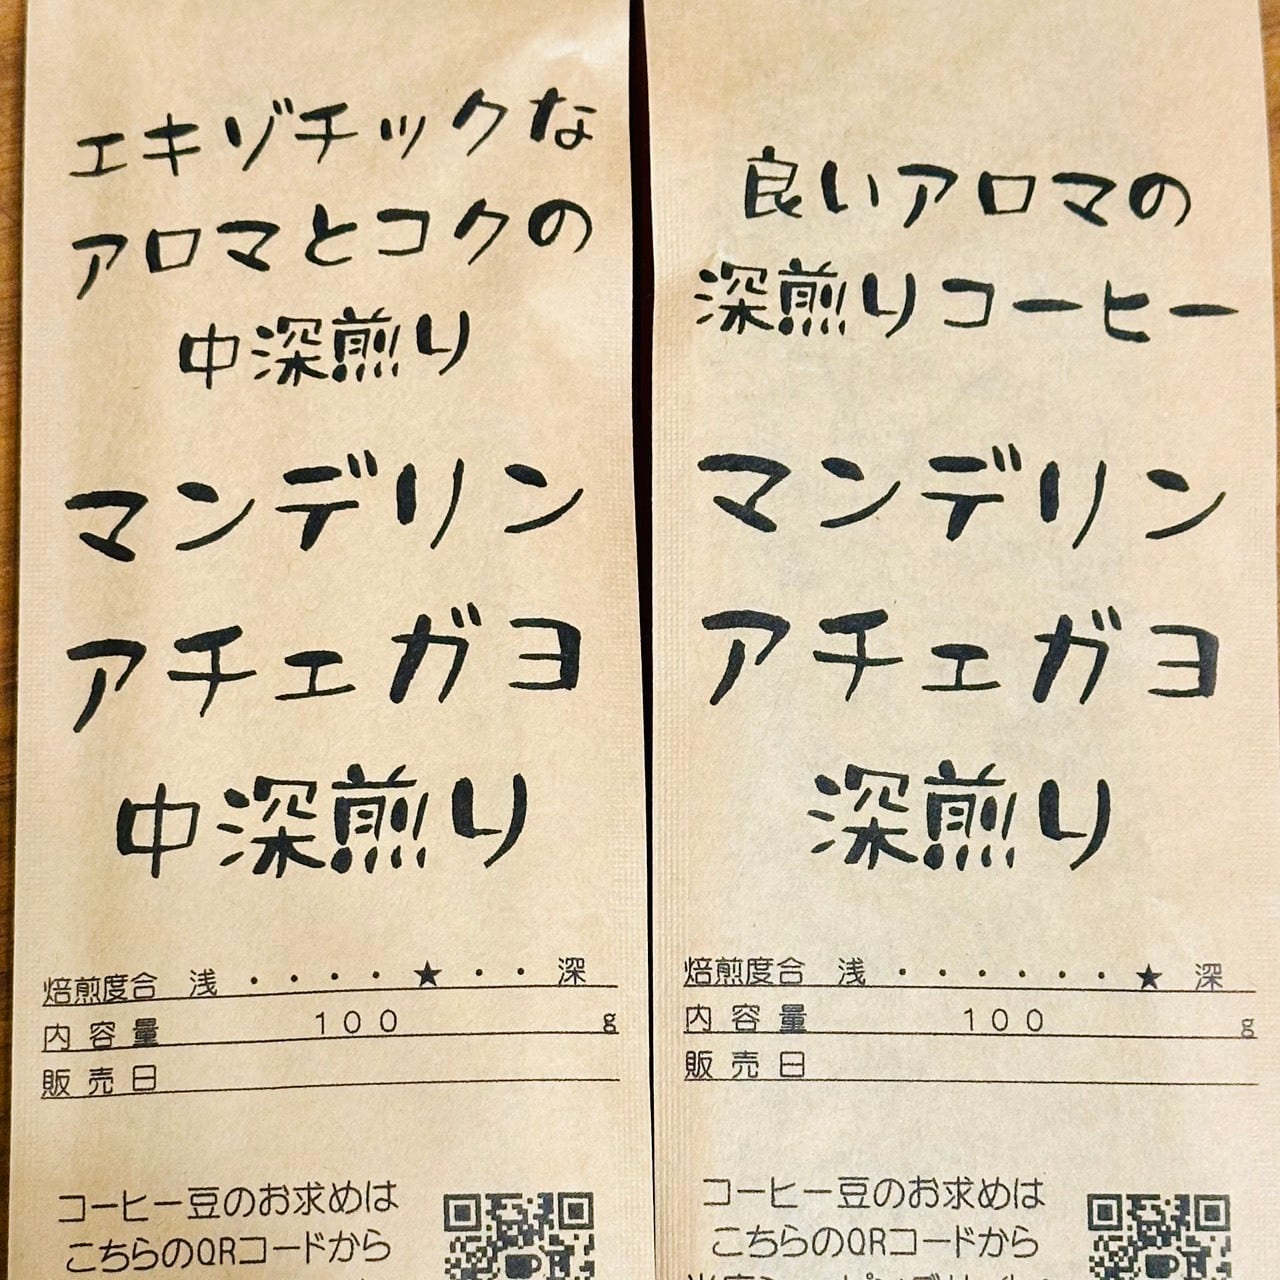 エキゾチックな
アロマとコクの
中深煎り
マンデリン
アチェガヨ
中深煎り
焙煎度合 浅 ・・・・★・・ 深
内容量 100 g
販売日
コーヒー豆のお求めは
こちらのQRコードから
良いアロマの
深煎りコーヒー
マンデリン
アチェガヨ
深煎り
焙煎度合 浅 ・・・・・・★ 深
内容量 100 g
販売日
コーヒー豆のお求めは
こちらのQRコードから